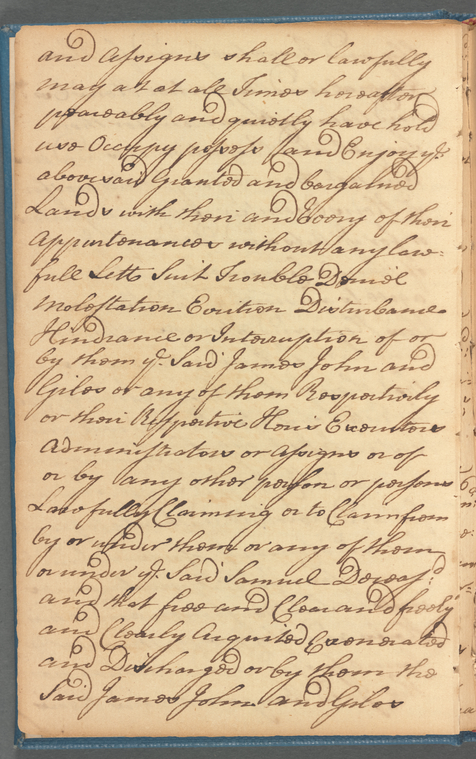 and Assigns shall or lawfully
may at at all Times hereafter
peaceably and quietly have hold
use Occupy possess and Enjoy ye
abovesaid granted and bargained
Lands with their and Every of their
Appurtenances without any law-
full Lett Suit Trouble Deniel
Molestation Eviction Disturbance
Hindrance or Interruption of or
by them ye Said James John and
Giles or any of them Respectively
or their Respective Heirs Executors
Administrators or Assigns or of
or by any other person or persons
Lawfully Claiming or to Claim from
by or under them or any of them
or under ye Said Samuel Deceasd
and that free and Clear and freely
and Clearly Acquited Exonerated
and Discharged or by them the
Said James John and Giles